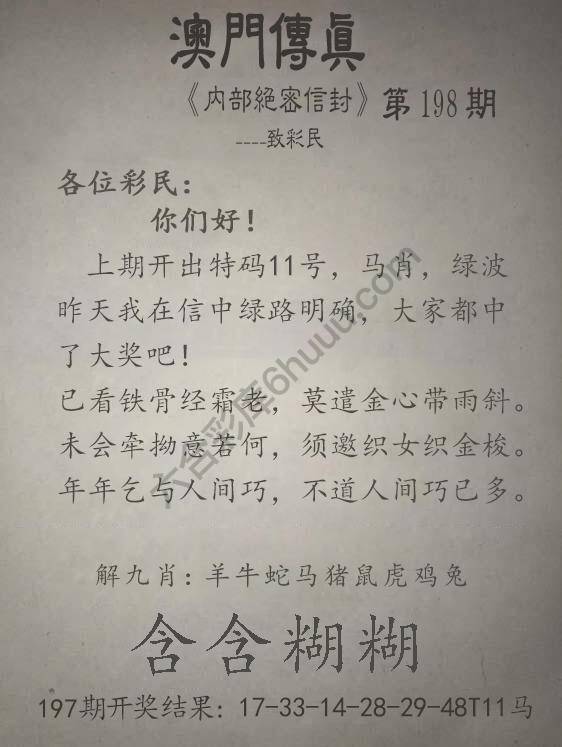 澳門傳眞
《内部絕密信封》第198期
----致彩民
各位彩民：
你们好！
上期开出特码11号，马肖，绿波
昨天我在信中绿路明确，大家都中
了大奖吧！
已看铁骨经霜老，莫遣金心带雨斜。
未会牵拗意若何，须邀织女织金梭。
年年乞与人间巧，不道人间巧已多。
六合彩库6huuu.com
解九肖：羊牛蛇马猪鼠虎鸡兔
含含糊糊
197期开奖结果：17-33-14-28-29-48T11马